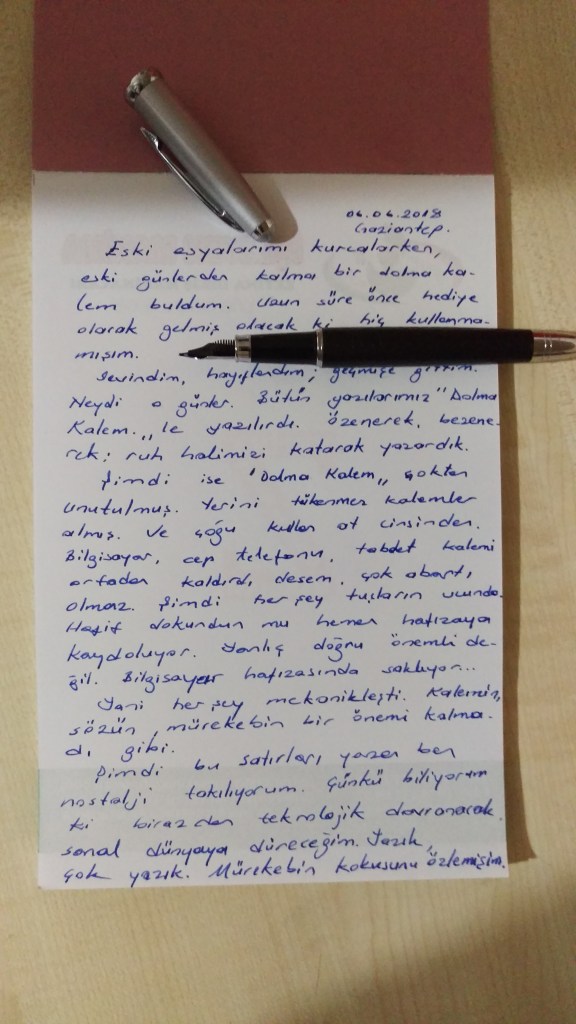 04.04.2018
Gaziantep.
Eski eşyalarımı kurcalarken,
eski günlerden kalma bir dolma ka-
lem buldum. Uzun süre önce hediye
olarak gelmiş olacak ki hiç kullanma-
mışım.
Sevindim, hayıflandım; geçmişe gittim.
Neydi o günler. Bütün yazılarımız "Dolma
Kalem.,, le yazılırdı. Özenerek, bezene-
rek; ruh halimizi katarak yazardık.
Şimdi ise "Dolma Kalem,, çoktan
unutulmuş. Yerini tükenmez kalemler
almış. Ve çoğu kullan at cinsinden.
Bilgisayar, cep telefonu, tablet kalemi
ortadan kaldırdı, desem, çok abartı
olmaz. Şimdi her şey tuşların ucunda.
Hafif dokundun mu hemen hafızaya
kaydoluyor. Yanlış doğru önemli de-
ğil. Bilgisayar hafızasında saklıyor...
Yani her şey mekanikleşti. Kalemin,
sözün, mürekebin bir önemi kalma-
dı gibi.
Şimdi bu satırları yazan ben
nostalji takılıyorum. Çünkü biliyorum
ki birazdan teknolojik davranacak
sanal dünyaya düreceğim. Yazık,
çok yazık. Mürekebin kokusunu özlemişim.